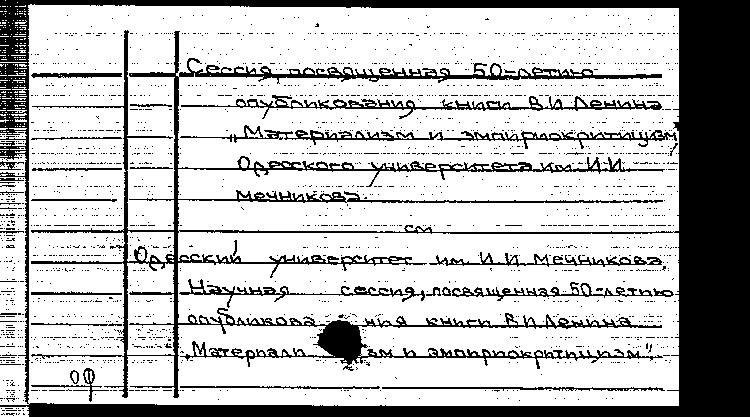 Сессия, посвященная 50-летию
опубликования книги В.И Ленина
„Материализм и эмпириокритицизм"
Одесского университета им. И.И.
Мечникова.
см
Одесский университет им И. И. Мечникова.
Научная сессия, посвященная 50-летию
опубликова ния книги В.И Ленина
„Материали зм и эмпириокритицизм".